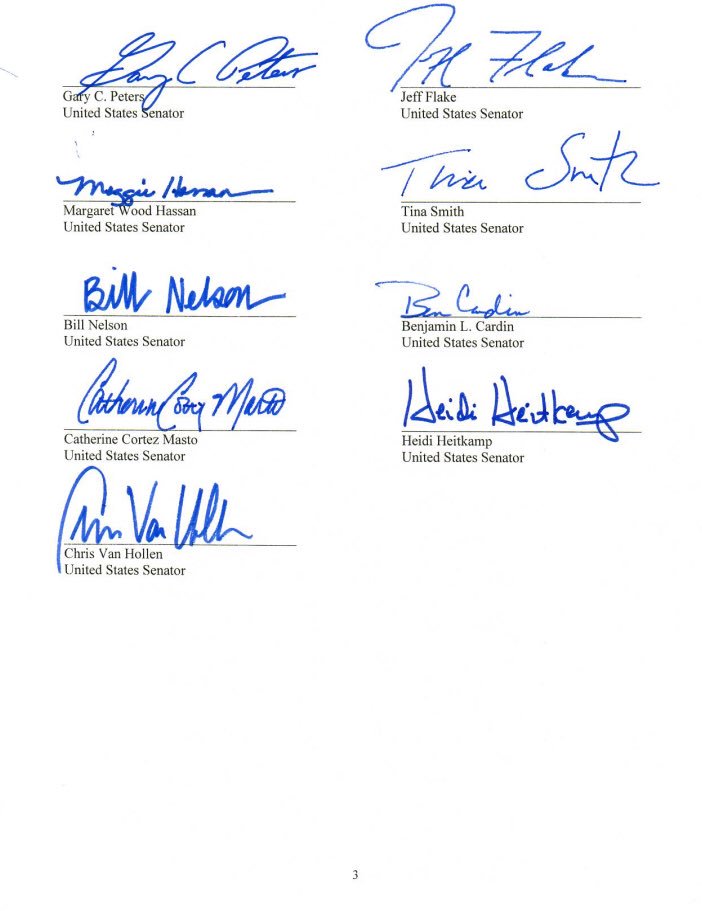 Gary C Peters
Gary C. Peters
United States Senator
Jeff Flake
Jeff Flake
United States Senator
Maggie Hassan
Margaret Wood Hassan
United States Senator
Tina Smith
Tina Smith
United States Senator
Bill Nelson
Bill Nelson
United States Senator
Ben Cardin
Benjamin L. Cardin
United States Senator
Catherine Cortez Masto
Catherine Cortez Masto
United States Senator
Heidi Heitkamp
Heidi Heitkamp
United States Senator
Chris Van Hollen
Chris Van Hollen
United States Senator
3